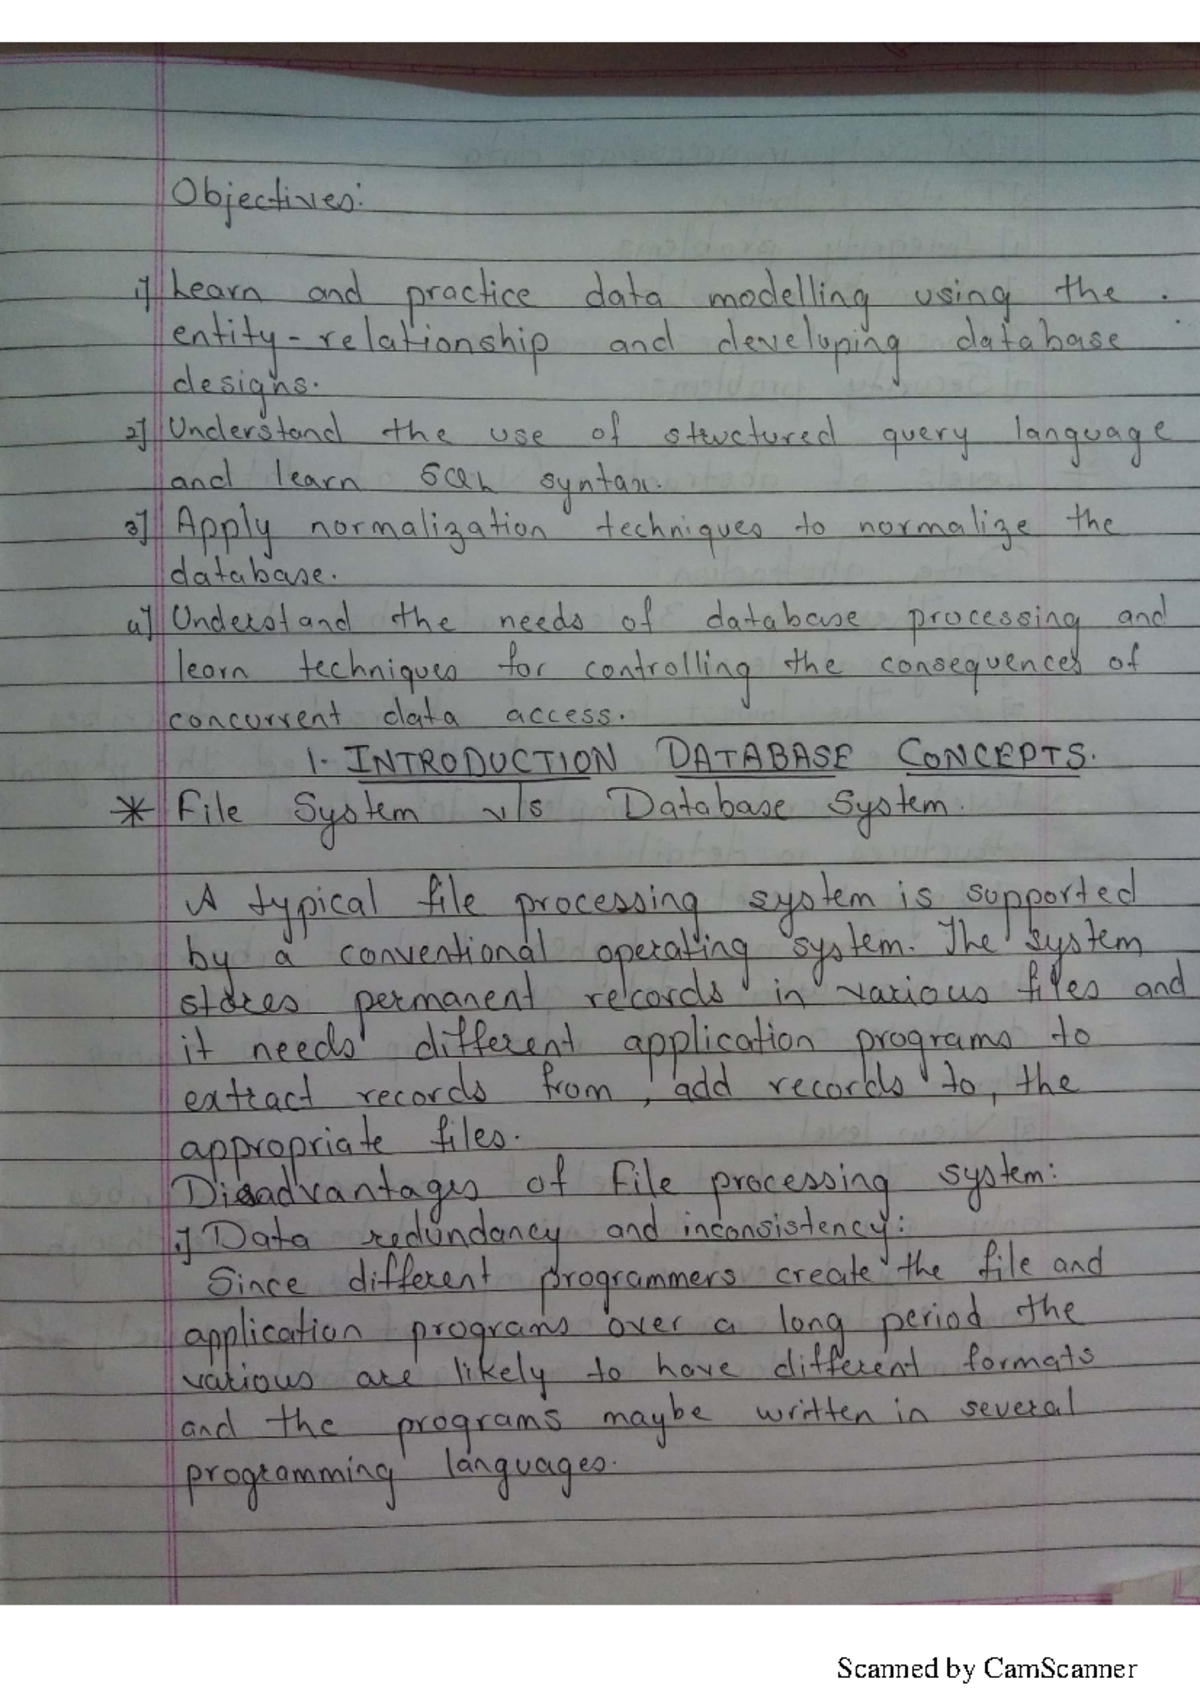 Objectives:
1] Learn and practice data modelling using the
entity-relationship and developing database
designs.
2] Understand the use of structured query language
and learn SQL syntax.
3] Apply normalization techniques to normalize the
database.
4] Understand the needs of database processing and
learn techniques for controlling the consequences of
concurrent data access.
1. INTRODUCTION DATABASE CONCEPTS.
* File System v/s Database System.
A typical file processing system is supported
by a conventional operating system. The system
stores permanent records in various files and
it needs different application programs to
extract records from, add records to, the
appropriate files.
Disadvantages of File processing system:
1] Data redundancy and inconsistency:
Since different programmers create the file and
application programs over a long period the
various are likely to have different formats
and the programs maybe written in several
programming languages.
Scanned by CamScanner